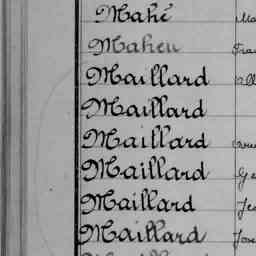 Mahé
Maheu
Maillard
Maillard
Maillard
Maillard
Maillard
Maillard